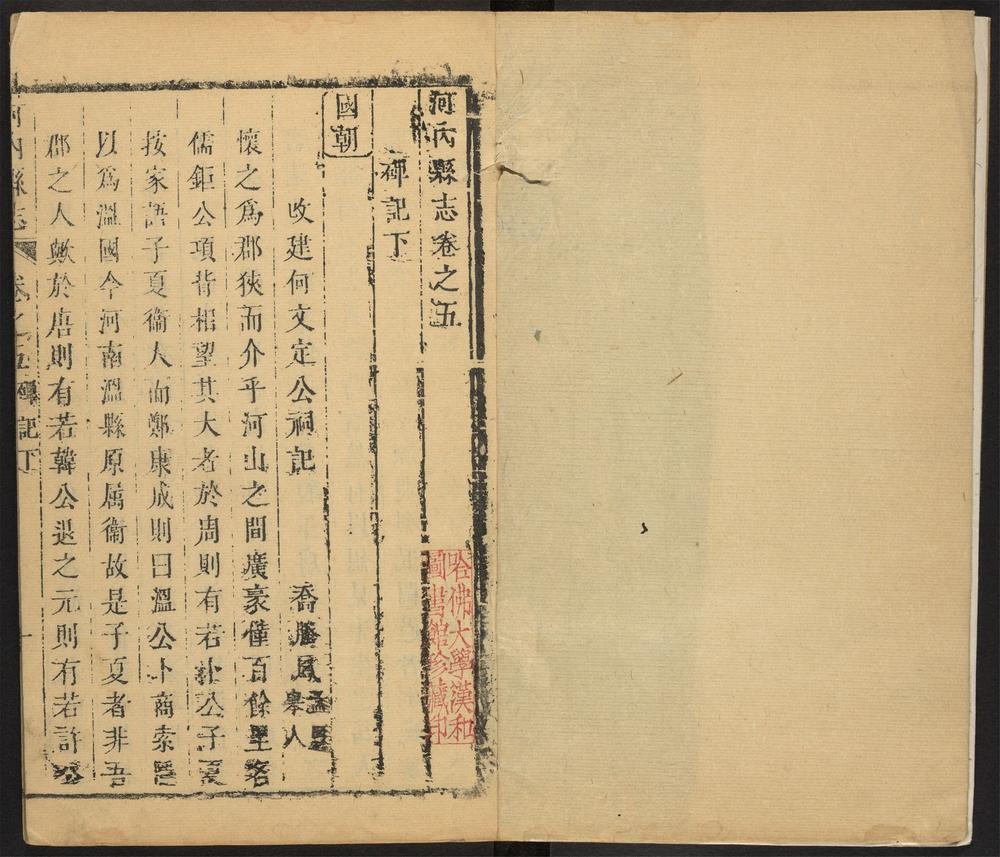 河内縣志卷之五
碑記下
國朝
改建何文定公祠記
喬騰鳳 孟縣 舉人
懷之爲郡狹而介乎河山之間廣豪僅百餘里名
儒鉅公項背相望其大者於周則有若卜公子夏
按家語子夏衞人而鄭康成則曰溫公卜商索隱
以爲溫國今河南溫縣原属衞故是子夏者非吾
郡之人歟於唐則有若韓公退之元則有若許公
河内縣志 卷之五 碑記下 一
哈佛大學漢和
圖書館珍藏印